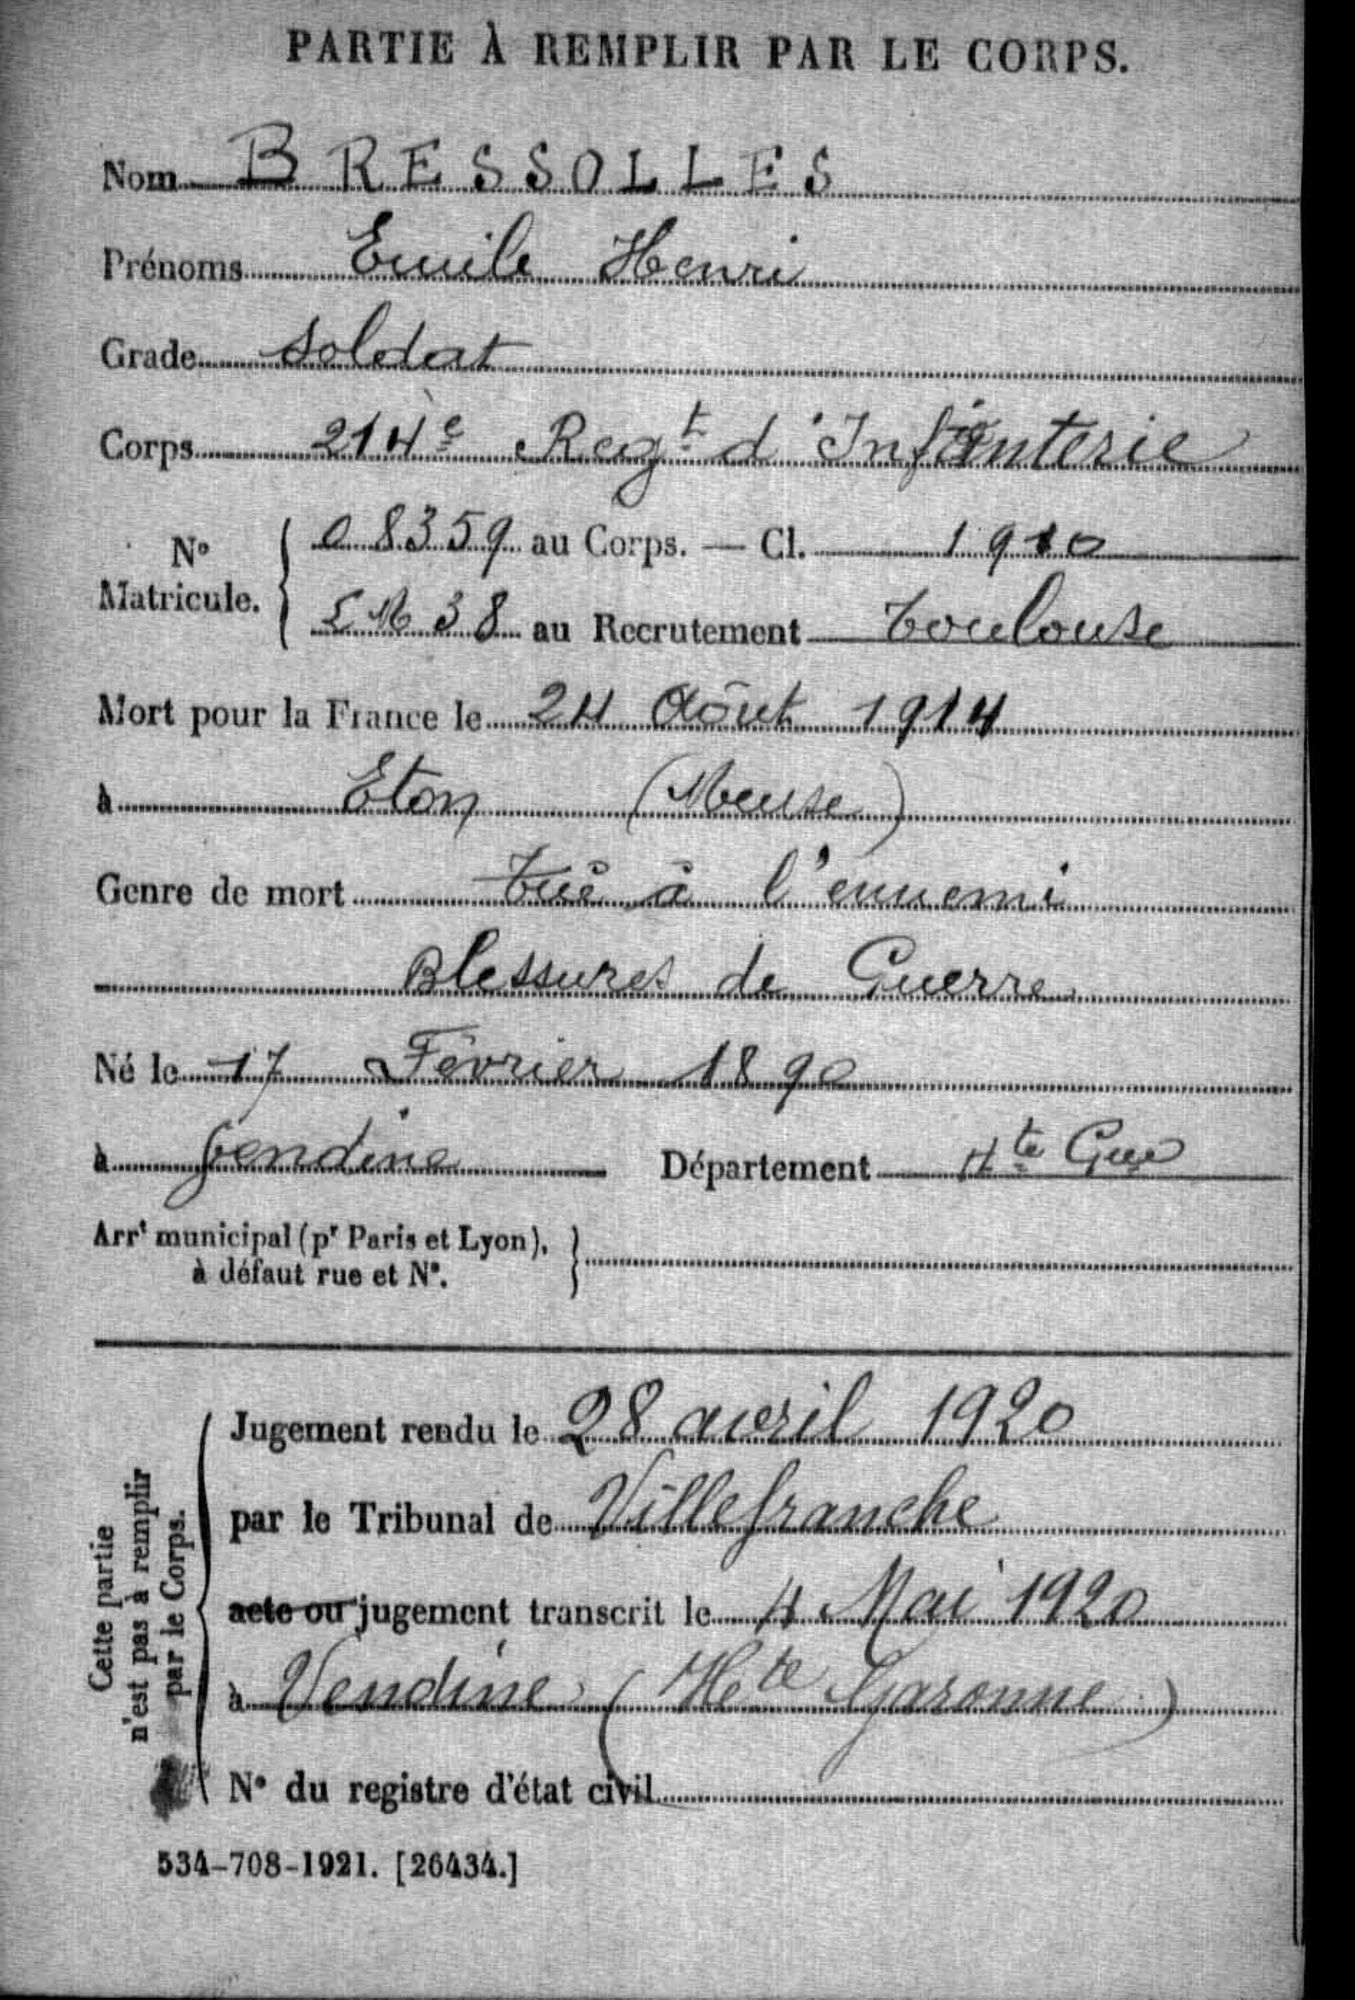 PARTIE À REMPLIR PAR LE CORPS.
Nom BRESSOLLES
Prénoms Emile Henri
Grade Soldat
Corps 214e Regt d'Infanterie
No Matricule. 08359 au Corps. — Cl. 1910
LM 38 au Recrutement Toulouse
Mort pour la France le 24 Août 1914
à Eton (Meuse)
Genre de mort Tué à l'ennemi
Blessures de Guerre
Né le 17 Février 1890
à Vendine Département Hte Gne
Arrt municipal (pr Paris et Lyon),
à défaut rue et No.
Cette partie
n'est pas à remplir
par le Corps.
Jugement rendu le 28 avril 1920
par le Tribunal de Villefranche
acte ou jugement transcrit le 4 Mai 1920
à Vendine (Hte Garonne)
No du registre d'état civil
534-708-1921. [26434.]